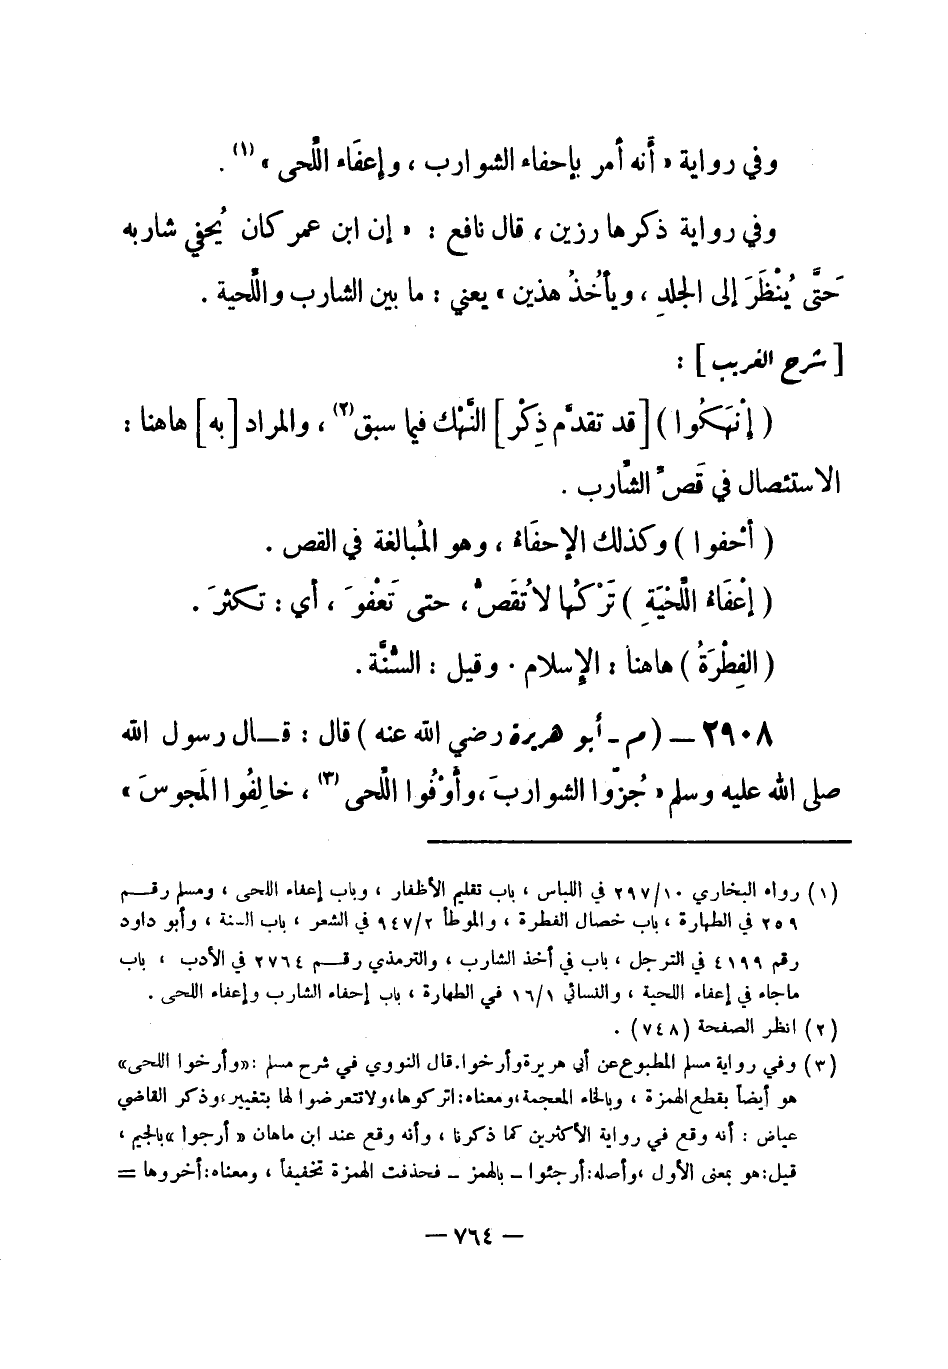 وفي رواية « أَنه أمر بإحفاء الشوارب ، وإعفَاء اللَّحى » (١) .
وفي رواية ذكرها رزين ، قال نافع : « إن ابن عمر كان يُحفي شاربه
حَتَّى يُنْظَرَ إلى الجلدِ ، ويأخُذُ هذين » يعني : ما بين الشارب واللَّحية .
[ شرح الغريب ] :
( إنْهَكُوا ) [ قد تقدَّم ذِكْر ] النَّهْك فيما سبق (٢) ، والمراد [ به ] هاهنا :
الاستئصال في قَصِّ الشَّارب .
( أحْفوا ) وكذلك الإحفَاءُ ، وهو المُبالغة في القص .
( إعْفَاءُ اللَّحْيَةِ ) تَرْكُها لا تُقَصُّ ، حتى تَعْفوَ ، أي : تكثرَ .
( الفِطْرَةُ ) هاهنا : الإسلام . وقيل : السُّنَّة .
٢٩٠٨ – ( م - أبو هريرة رضي الله عنه ) قال : قـال رسول الله
صلى الله عليه وسلم « جُزّوا الشواربَ ، وأَوْفُوا اللَّحى (٣) ، خالِفُوا المَجوسَ »
(١) رواه البخاري ٢٩٧/١٠ في اللباس ، باب تقليم الأظفار ، وباب إعفاء اللحى ، ومسلم رقـم
٢٥٩ في الطهارة ، باب خصال الفطرة ، والموطأ ٩٤٧/٢ في الشعر ، باب السنة ، وأبو داود
رقم ٤١٩٩ في الترجل ، باب في أخذ الشارب ، والترمذي رقـم ٢٧٦٤ في الأدب ، باب
ماجاء في إعفاء اللحية ، والنسائي ١٦/١ في الطهارة ، باب إحفاء الشارب وإعفاء اللحى .
(٢) انظر الصفحة (٧٤٨) .
(٣) وفي رواية مسلم المطبوع عن أبي هريرة وأرخوا. قال النووي في شرح مسلم :«وأرخوا اللحى»
هو أيضاً بقطع الهمزة ، وبالخاء المعجمة، ومعناه: اتركوها، ولاتتعرضوا لها بتغيير، وذكر القاضي
عياض : أنه وقع في رواية الأكثرين كما ذكرنا ، وأنه وقع عند ابن ماهان « أرجوا » بالجيم ،
قيل: هو بمعنى الأول ، وأصله: أرجئوا – بالهمز – فحذفت الهمزة تخفيفاً ، ومعناه: أخروها =
– ٧٦٤ –